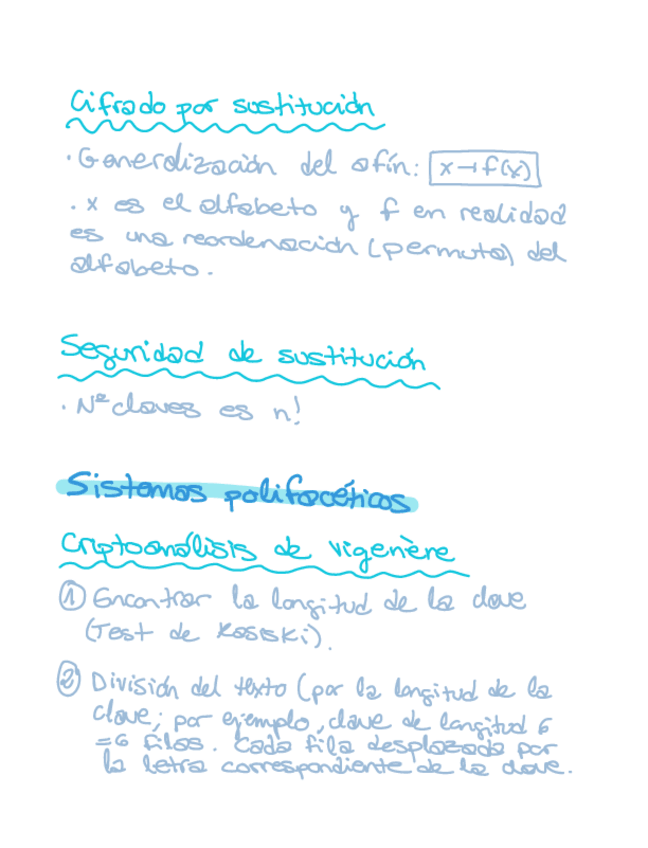 Cifrado por sustitución
· Generalización del afín: x→f(x)
· x es el alfabeto y f en realidad
es una reordenación (permuta) del
alfabeto.
Seguridad de sustitución
· Nº claves es n!
Sistemas polifacéticos
Criptoanálisis de vigenère
① Encontrar la longitud de la clave
(Test de Kasiski).
② División del texto (por la longitud de la
clave; por ejemplo, clave de longitud 6
=6 filas. Cada fila desplazada por
la letra correspondiente de la clave.